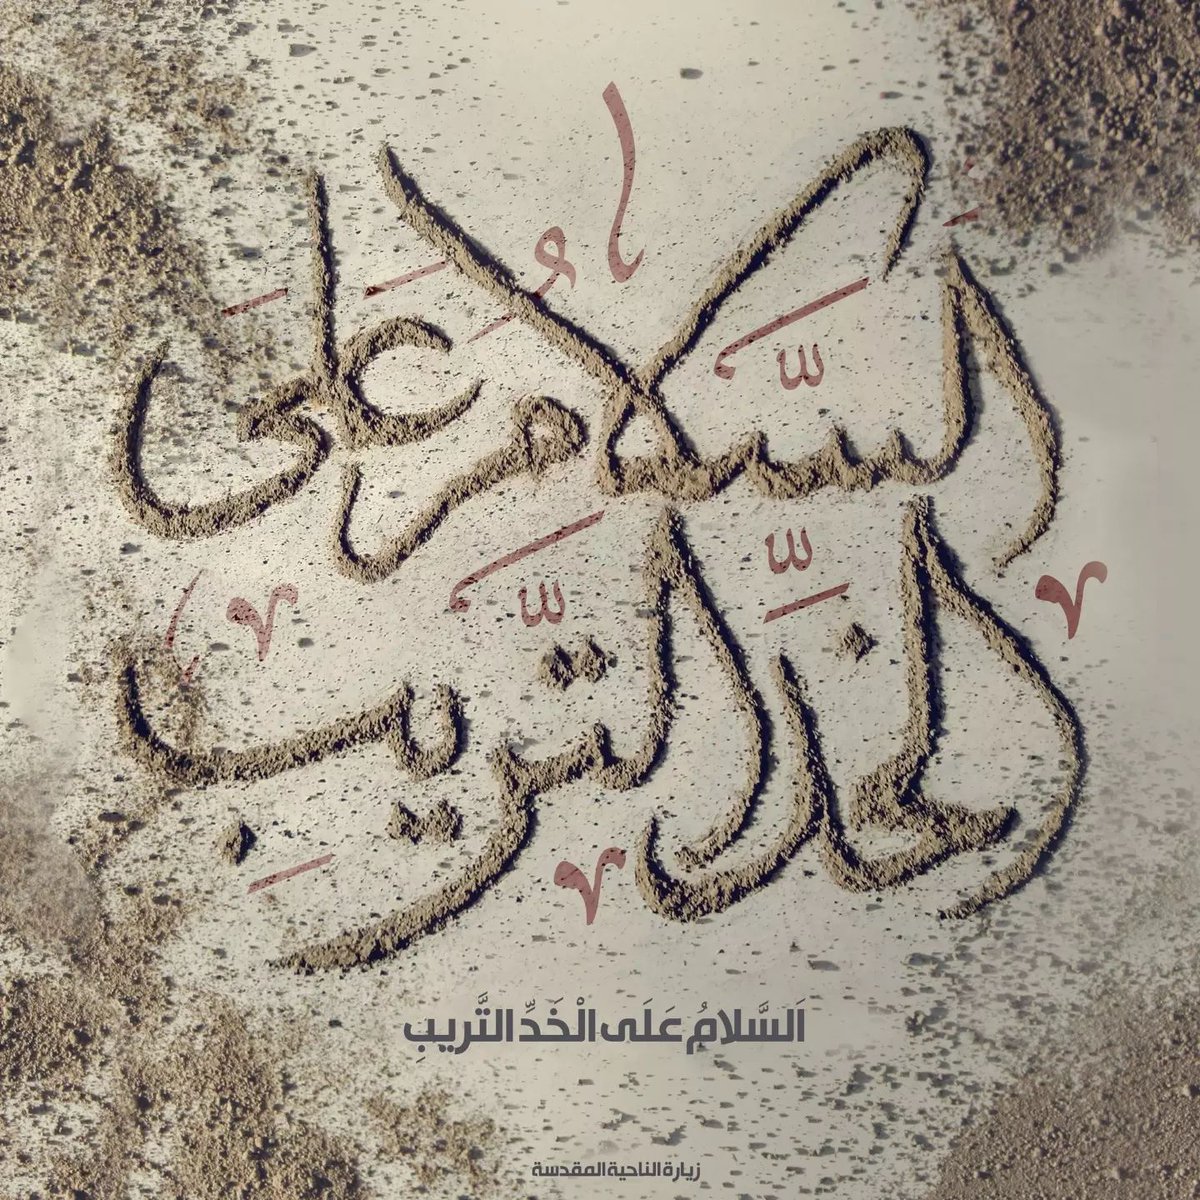 السَّلَامُ عَلَى
الْخَدِّ التَّرِيبِ
اَلسَّلامُ عَلَى الْخَدِّ التَّريب
زيارة الناحية المقدسة